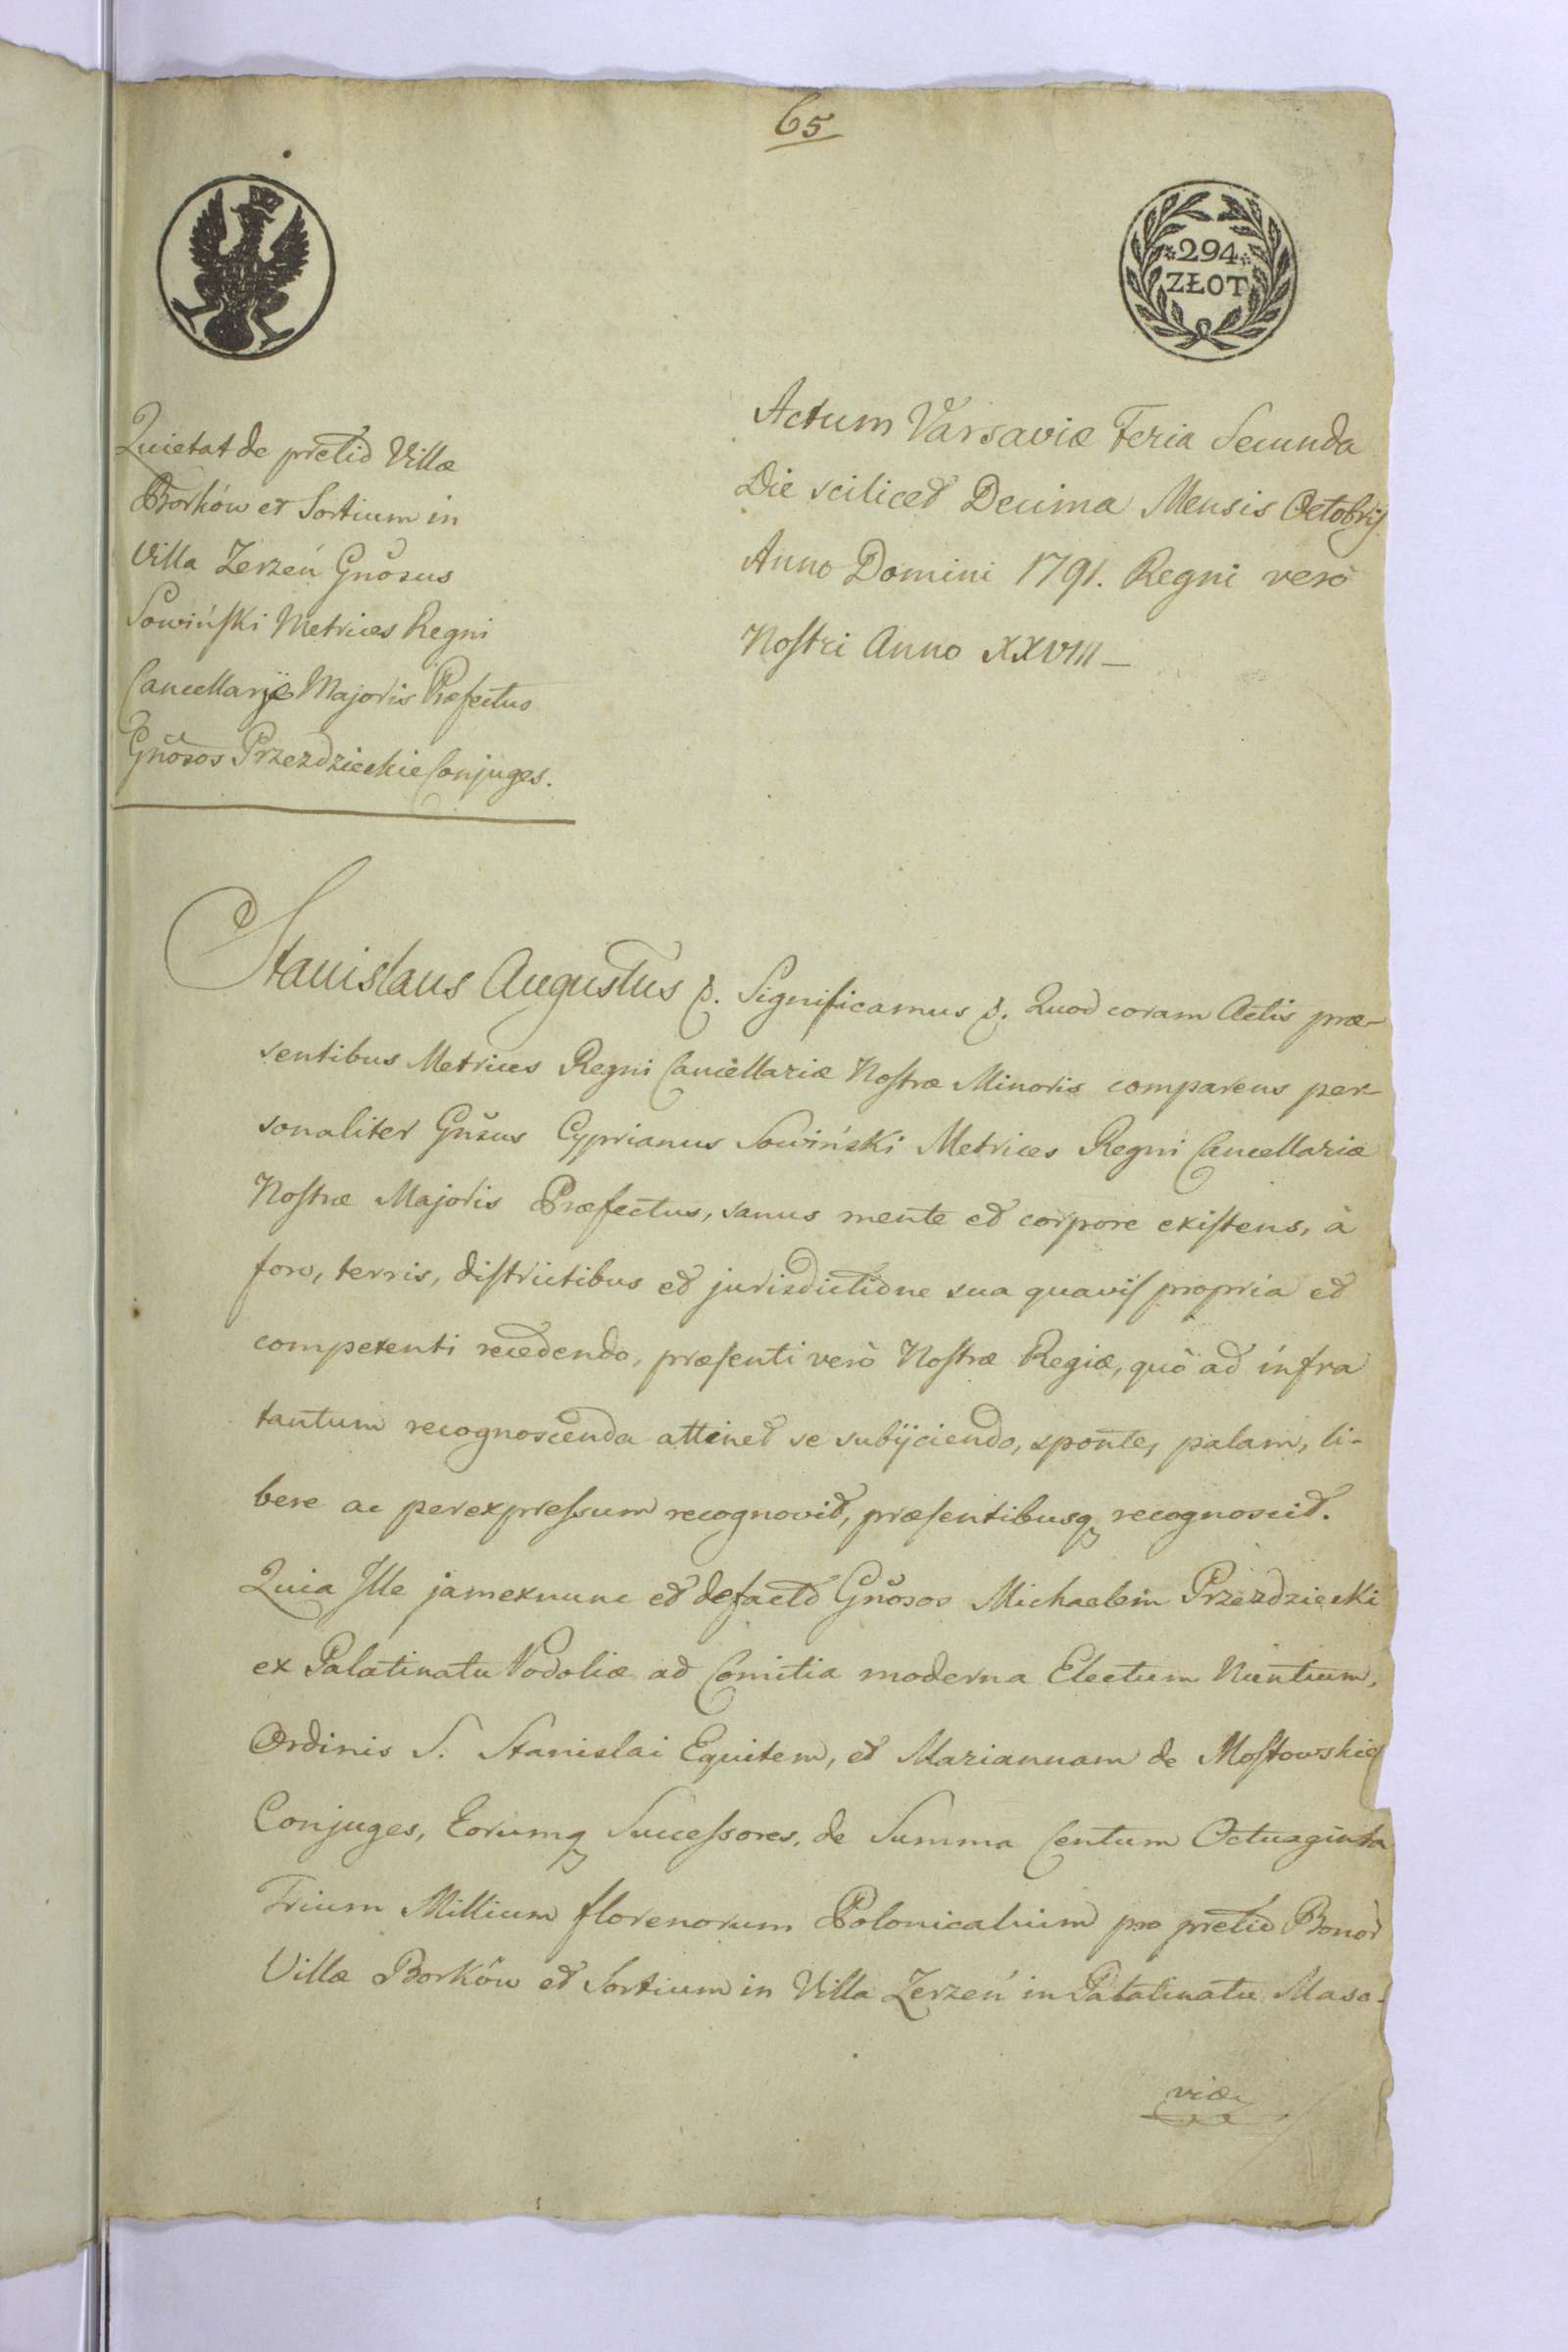 65
294
ZŁOT
Quietat de pretio Villæ
Borków et Sortium in
Villa Zerzeń Gnosus
Sowińſki Metrices Regni
Cancellariæ Majoris Præfectus
Gnosos Przezdzieckie Conjuges.
Actum Varsaviæ Feria Secunda
Die scilicet Decima Mensis Octobris
Anno Domini 1791. Regni verò
Noſtri Anno XXVIII
Stanislaus Augustus &. Significamus &. Quod coram Actis præ-
sentibus Metrices Regni Cancellariæ Noſtræ Minoris comparens per-
sonaliter Gnsus Cyprianus Sowiński Metrices Regni Cancellariæ
Noſtræ Majoris Præfectus, sanus mente et corpore exiſtens, à
foro, terris, diſtrictibus et jurisdictione sua quaviſ propria et
competenti recedendo, præſenti verò Noſtræ Regiæ, quò ad infra
tantum recognoscenda attinet se subijciendo, sponte, palam, li-
bere ac perexpreſsum recognovit, præſentibusq recognoscit.
Quia Ille jamexnunc et defacto Gnosos Michaelem Przezdziecki
ex Palatinatu Podoliæ ad Comitia moderna Electum Nuntium,
Ordinis S. Stanislai Equitem, et Mariannam de Moſtowskie
Conjuges, Eorumq Succeſsores, de Summa Centum Octuaginta
Trium Millium florenorum Polonicalium pro pretio Bonor
Villæ Borków et Sortium in Villa Zerzeń in Palatinatu Maso-
viæ